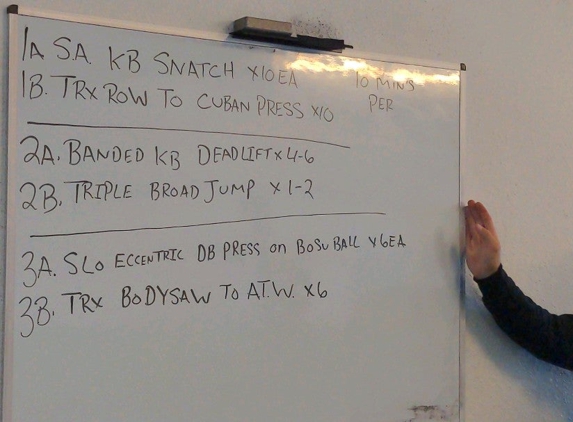 1A S.A. KB SNATCH X10EA 10 MINS
1B. TRX ROW TO CUBAN PRESS X10 PER
2A. BANDED KB DEADLIFT X 4-6
2B. TRIPLE BROAD JUMP X 1-2
3A. SLO ECCENTRIC DB PRESS on BOSU BALL X6EA
3B. TRX BODYSAW TO AT.W. X6